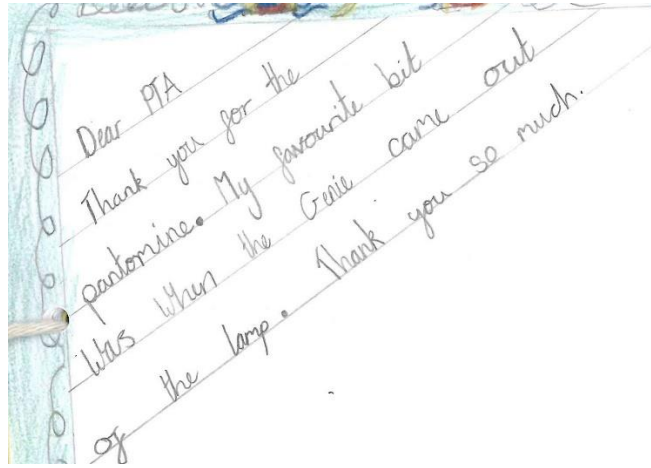 Dear PTA
Thank you for the
pantomine. My favourite bit
Was When the Genie came out
of the lamp. Thank you so much.